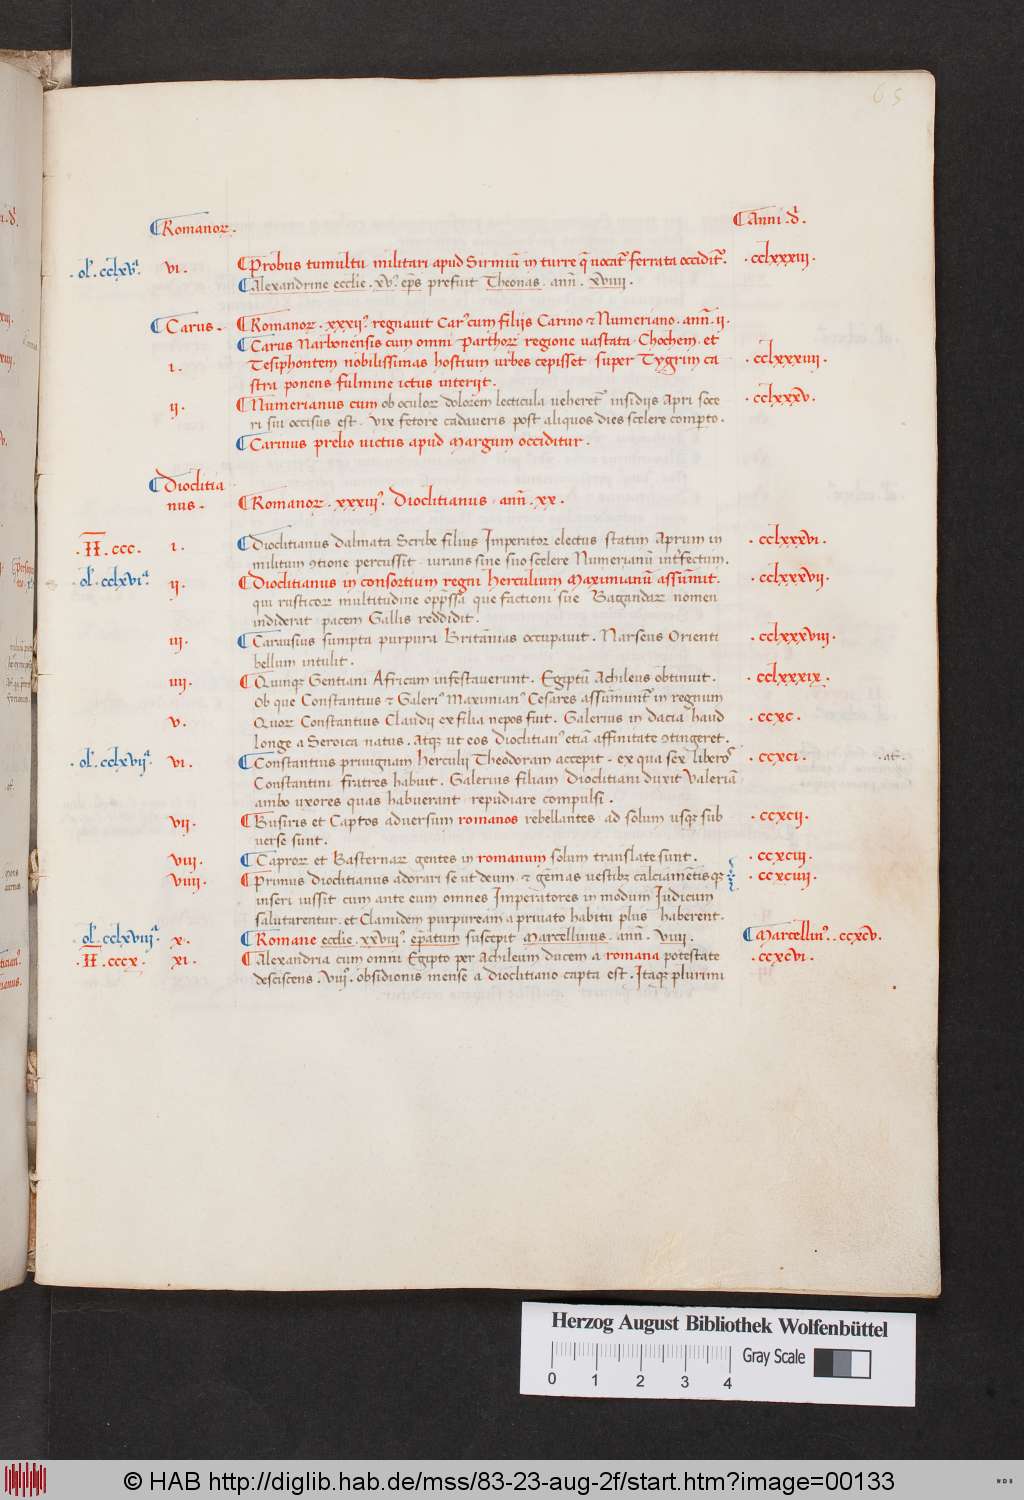 65
Romanoꝝ.
Anni .d̄.
.ol'. cclxvᵃ. vi. Probus tumultu militari apud Sirmiū in turre q̄ uocat̄ ferrata occidit̄. .cclxxxiii.
Alexandrine ecclie .xvᵒ. ep̄s prefuit Theonas. ann̄. xviiii.
Carus. Romanoꝝ .xxxiiᵒ. regnauit Carᵒ cum filijs Carino ⁊ Numeriano. ann̄. ii.
Carus Narbonensis cum omni Parthoꝝ regione uastata Chochem. et
i. Tesiphontem nobilissimas hostium urbes cepisset super Tygrim ca .cclxxxiiii.
stra ponens fulmine ictus interijt.
ii. Numerianus cum ob oculoꝝ dolorem lecticula ueheret̄ insidijs Apri soce .cclxxxv.
ri sui occisus est. vix fetore cadaveris post aliquos dies scelere comperto.
Carinus prelio uictus apud Margum occiditur.
Dioclitia
nus. Romanoꝝ .xxxiiiᵒ. Dioclitianus. ann̄. xx.
.H. ccc. i. Dioclitianus dalmata Scribe filius Imperator electus statim Aprum in .cclxxxvi.
militum ꝯtione percussit. iurans sine suo scelere Numerianū int̄fectum.
.ol'. cclxviᵃ. ii. Dioclitianus in consortium regni herculium Maximianū assūmit. .cclxxxvii.
qui rusticoꝝ multitudine opp̄ssa que factioni sue Bagandaꝝ nomen
indiderat pacem Gallis reddidit.
iii. Carausius sumpta purpura Britānias occupauit. Narseus Orienti .cclxxxviii.
bellum intulit.
iiii. Quinqꝫ Gentiani Africam infestaverunt. Egiptū Achileus obtinuit. .cclxxxix.
Ob que Constantius ⁊ Galeriᵒ Maximianᵒ Cesares assūmunt̄ in regnum
v. Quoꝝ Constantius Claudij ex filia nepos fuit. Galerius in dacia haud .ccxc.
longe a Seroica natus. Atqꝫ ut eos Dioclitianᵒ etiā affinitate ꝯtingeret.
.ol'. cclxviiᵃ. vi. Constantius priuignam herculij Theodoram accepit. ex qua sex liberoˢ .ccxci.
Constantini fratres habuit. Galerius filiam Dioclitiani duxit Valeriā
ambo uxores quas habuerant repudiare compulsi.
vii. Busiris et Captos adversum romanos rebellantes ad solum usqꝫ sub .ccxcii.
verse sunt.
viii. Caproꝝ et Basternaꝝ gentes in romanum solum translate sunt. .ccxciii.
viiii. Primus Dioclitianus adorari se ut deum. ⁊ gēmas uestibꝫ calciamētisqꝫ .ccxciiij.
inseri iussit cum ante eum omnes Imperatores in modum Iudicum
salutarentur. et Clamidem purpuream a priuato habitu plus haberent.
.ol'. cclxviiiᵃ. x. Romane ecclie .xxviiᵒ. ep̄atum suscepit Marcellinus. ann̄. viiii. Marcellinᵒ. .ccxcv.
.H. cccx. xi. Alexandria cum omni Egipto per Achileum ducem a romana potestate .ccxcvi.
desciscens. viiiᵒ. obsidionis mense a dioclitiano capta est. Itaqꝫ plurimi
Herzog August Bibliothek Wolfenbüttel
Gray Scale
0 1 2 3 4
© HAB http://diglib.hab.de/mss/83-23-aug-2f/start.htm?image=00133